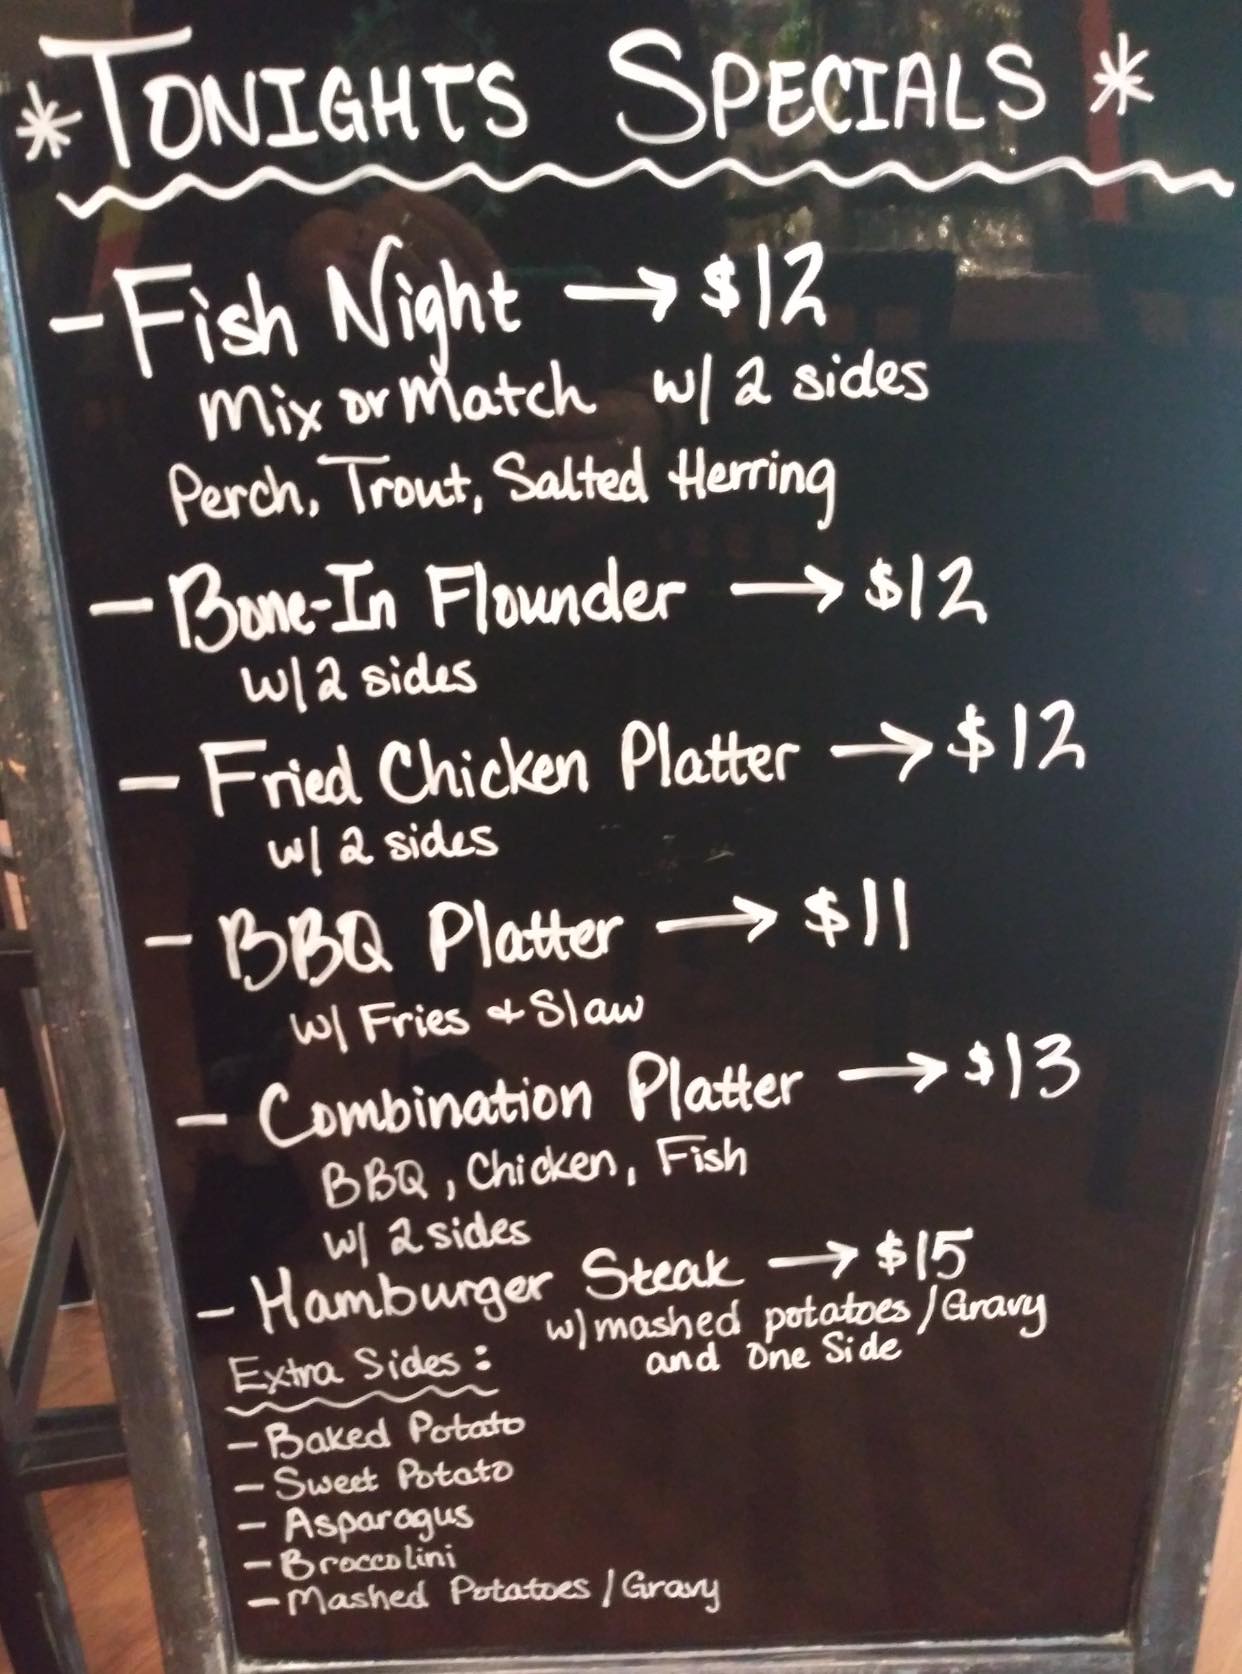 *TONIGHTS SPECIALS*
- Fish Night → $12
Mix or Match w/ 2 sides
Perch, Trout, Salted Herring
- Bone-In Flounder → $12
w/ 2 sides
- Fried Chicken Platter → $12
w/ 2 sides
- BBQ Platter → $11
w/ Fries & Slaw
- Combination Platter → $13
BBQ, Chicken, Fish
w/ 2 sides
- Hamburger Steak → $15
w/ mashed potatoes / Gravy
and One Side
Extra Sides:
- Baked Potato
- Sweet Potato
- Asparagus
- Broccolini
- Mashed Potatoes / Gravy